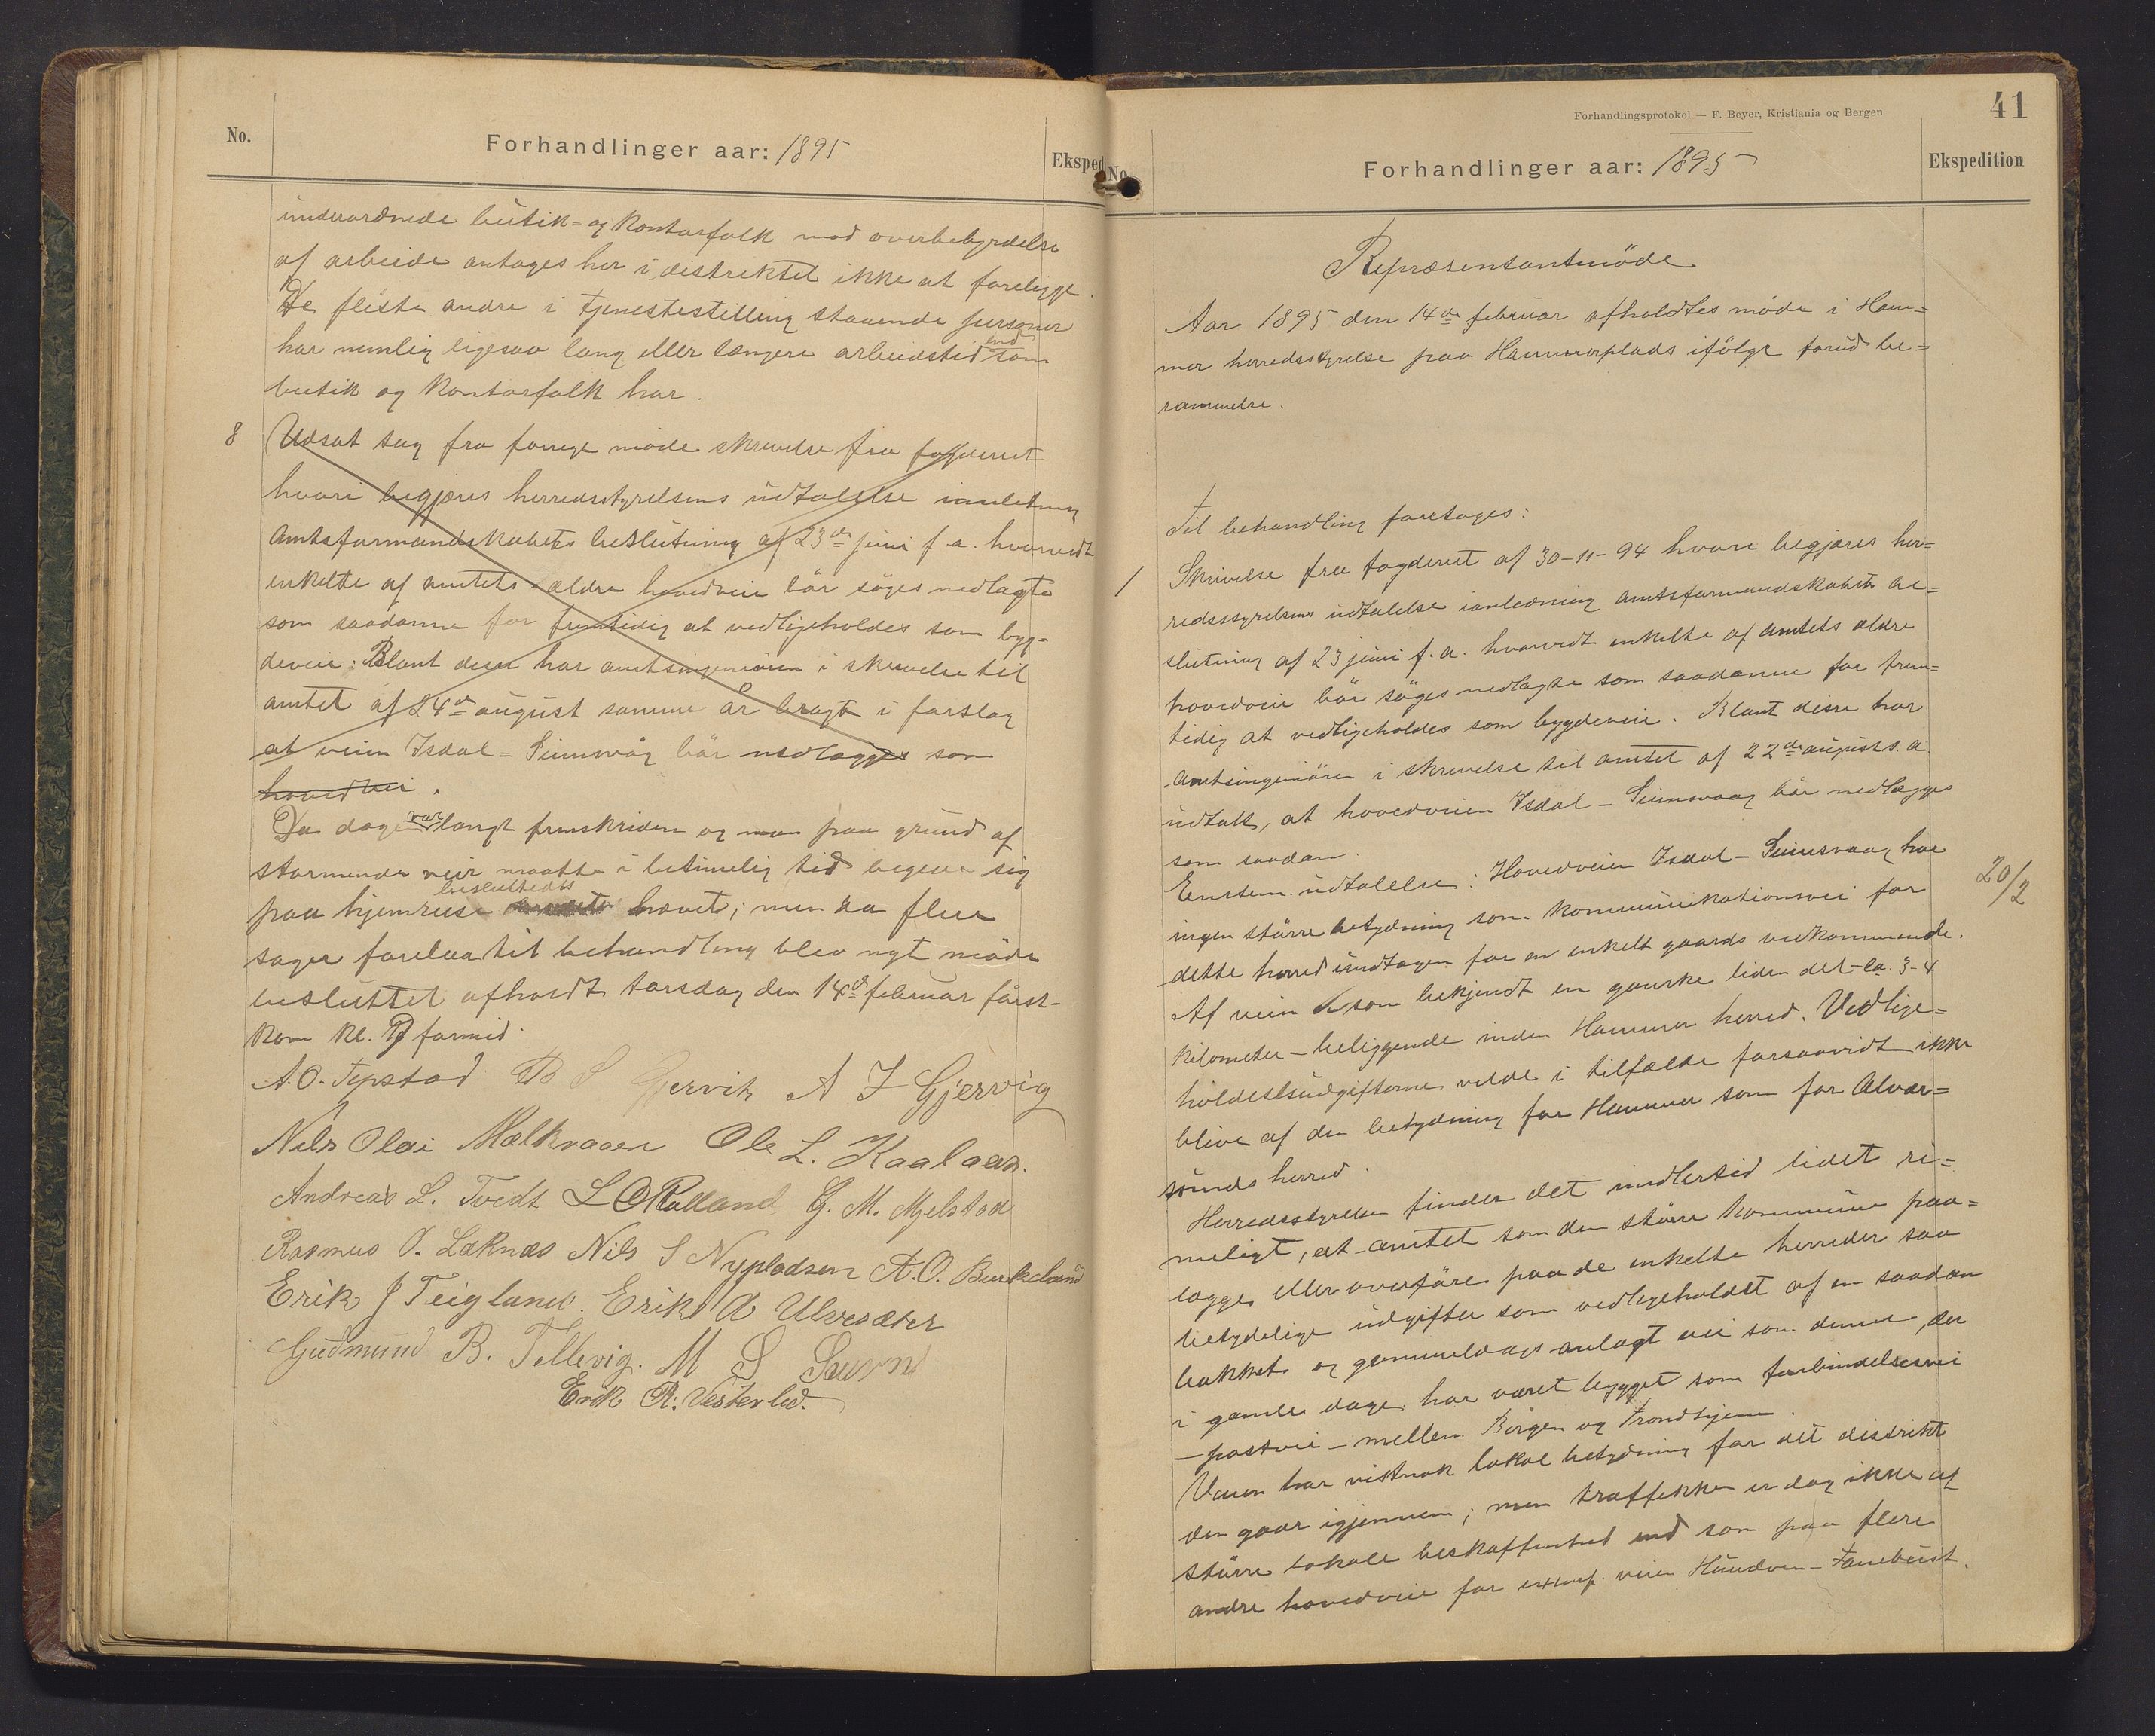 No.
Forhandlinger aar: 1895
Eksped
underordnede butik- og kontorfolk mod overbebyrdelse
af arbeide antages her i distriktet ikke at foreligge.
De fleste andre i tjenestestilling staaende personer
har nemlig ligesaa lang eller længere arbeidstid end som
butik og kontorfolk har.
8 Udsat sag fra forrige møde skrivelse fra fogderiet
hvori begjæres herredsstyrelsens udtalelse ianledning
Amtsformandskabets beslutning af 23de juni f. a. hvorvidt
enkelte af amtets ældre hovedveie bør søges nedlagte
som saadanne for fremtidig at vedligeholdes som byg-
deveie. Blant disse har amtsingeniøren i skrivelse til
amtet af 24de august samme år bragt i forslag
at veien Isdal = Seimsvåg bør nedlægges som
hovedvei.
Da dagen var langt fremskriden og man paa grund af
stormende veir maatte i betimelig tid begive sig
paa hjemreise besluttedes hævet; men da flere
sager forelaa til behandling blev nyt møde
besluttet afholdt torsdag den 14de februar først-
kom kl. 9 formid.
A. O. Tepstad B S Gjervik A J Gjervig
Nils Olai Mælkvaaen Ole L. Kaalaas.
Andreas L. Tvedt L O Rolland G. M. Mjelstad
Rasmus O. Læknæs Nils S Nypladsen A. O. Burkeland
Erik J Teigland. Erik A Ulvesæter
Gudmund B. Tellevig. M S
Erik R. Vesterlid.
Forhandlingsprotokol — F. Beyer, Kristiania og Bergen
41
No.
Forhandlinger aar: 1895
Ekspedition
Repræsentantmøde
Aar 1895 den 14de februar afholdtes møde i Ham=
mer herredsstyrelse paa Hammerplads ifølge forud be=
rammelse.
Til behandling foretoges:
1 Skrivelse fra fogderiet af 30-11-94 hvori begjæres her=
redsstyrelsens udtalelse ianledning amtsformandskabets be=
slutning af 23 juni f. a. hvorvidt enkelte af amtets ældre
hovedveie bør søges nedlagte som saadanne for frem=
tidig at vedligeholdes som bygdeveie. Blant disse har
amtsingeniøren i skrivelse til amtet af 22de august s. a.
udtalt, at hovedveien Isdal - Seimsvaag bør nedlægges
som saadan.
Enstem. udtalelse: Hovedveien Isdal - Seimsvaag har
20/2
ingen større betydning som kommunikationsvei for
dette herred undtagen for en enkelt gaards vedkommende.
Af veien er som bekjendt en ganske liden del - ca. 3-4
kilometer - beliggende inden Hammer herred. Vedlige=
holdelsudgifterne vilde i tilfælde forsaavidt ikke
blive af den betydning for Hammer som for Alver=
sunds herred.
Herredsstyrelsen finder det imidlertid lidet ri=
meligt, at amtet som den større kommune paa=
lægges eller overføre paa de enkelte herreder saa
betydelige udgifter som vedligeholdet af en saadan
bakket og gammeldags anlagt vei som denne, der
i gamle dage har været bygget som forbindelsesvei
- postvei - mellem Bergen og Trondhjem.
Veien har vistnok lokal betydning for det distrikt
den gaar igjennem; men traffikken er dog ikke af
større lokale beskaffenhed end som paa flere
andre hovedveie for exempl. veien Hundven - Fanebust.